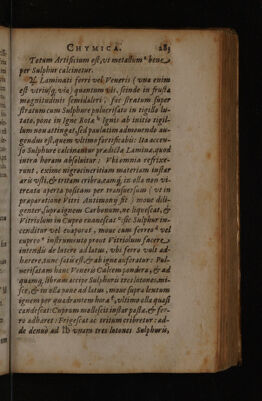 CHYMICA. 283
Totum Artificium est, vt metallum bene
per Sulphur calcinetur.
♃. Laminati ferri vel Veneris (vna enim
est vtriusq; via) quantum vis, scinde in frusta
magnitudinis semidaleri, fac stratum super
stratum cum Sulphure puluerisato in tigillo lu-
tato, pone in Igne Rota Ignis ab initio tigil-
lum non attingat, sed paulatim admouendo au-
gendus est, quem vltimo fortificabis: Ita accen-
so Sulphure calcinantur praedictae Laminae, quod
intra horam absoluitur: Vbi omnia refrixe-
runt, exime nigrecineritiam materiam instar
aeris vsti, & tritam cribra, eamq; in olla non vi-
treata aperta positam per transuersum (vt in
praeparatione Vitri Antimonij fit) moue dili-
genter, supra ignem Carbonum, ne liquescat, &
Vitriolum in Cupro euanescat: sic Sulphur in-
cenditur vel euaporat, moue cum ferreo vel
cupreo instrumento prout Vitriolum facere
intendis de latere ad latus, vbi ferro vult ad-
haerere, tunc satis est, & ab igne auferatur: Pul-
uerisatam hanc Veneris Calcem pondera, & ad
quamq; libram accipe Sulphuris tres lotones, mi-
sce, & in olla pone ad latus, moue supra lentum
ignem per quadrantem horae, vltimo olla quasi
candescat: Cuprum mollescit instar pastae, & fer-
ro adhaeret: Frigescat ac tritum cribretur: ad-
de denuò ad lb vnam tres lotones Sulphuris,